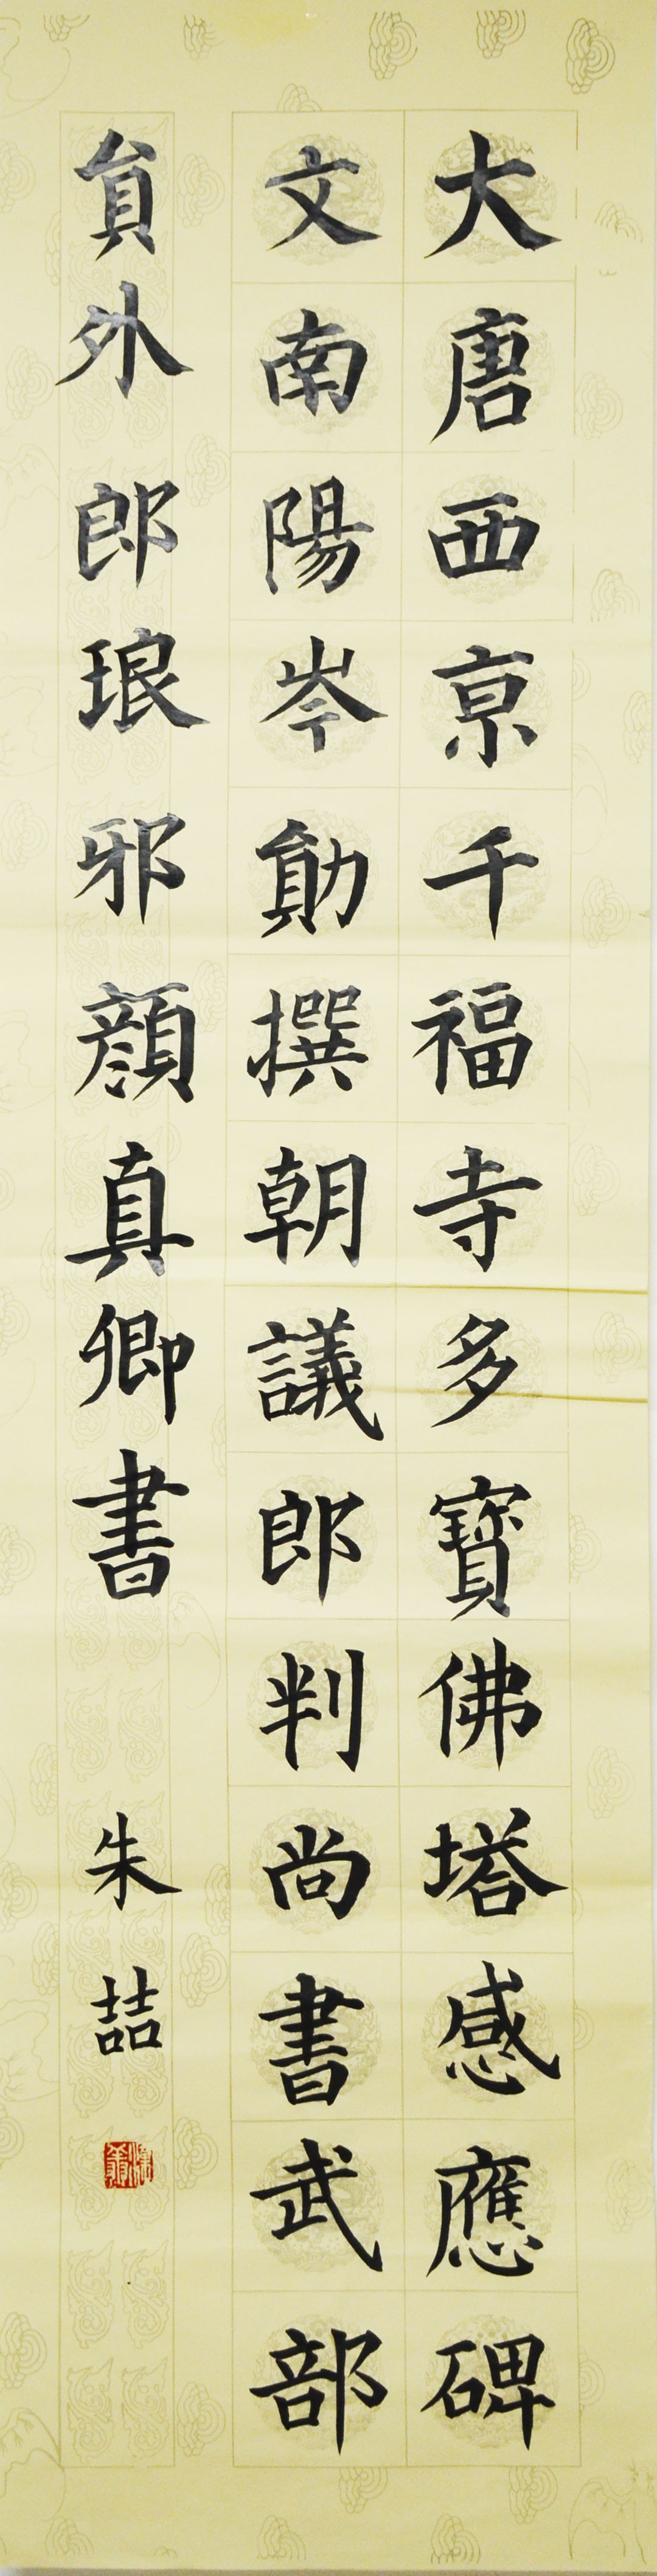 大唐西亰千福寺多寳佛塔感應碑
文南陽岑勛撰朝議郎判尚書武部
員外郎琅邪顏真卿書
朱喆